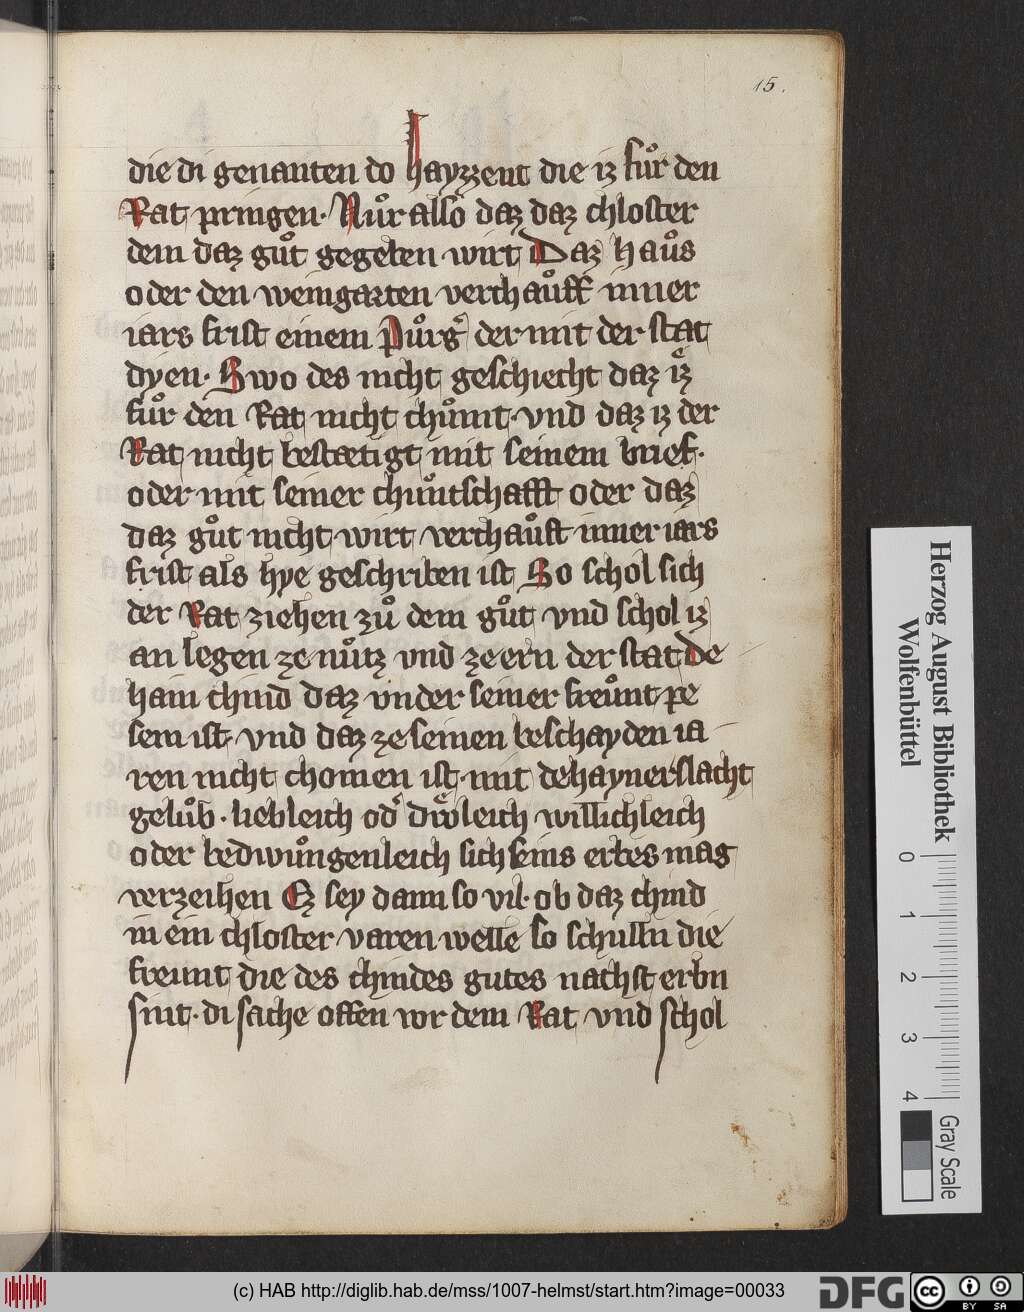 15.
die di genanten do hayzzent die iz fuͦr den
Rat pringen· Nuͦr also daz daz chloster
dem daz guͦt gegeben wirt Daz hauͦs
oder den weingarten verchauͦff inner
iars frist einem Puͦrg̉ der mit der stat
dyen· Swo des nicht geschiecht daz iz
fuͦr den Rat nicht chuͦmt· vnd daz iz der
Rat nicht bestætigt mit seinem brief·
oder mit seiner chuͦntschafft oder daz
daz guͦt nicht wirt verchauͦft inner iars
frist als hye geschriben ist So schol sich
der Rat ziehen zuͦ dem guͦt vnd schol iz
an legen ze nuͦtz vnd ze ern der stat De
hain chind daz vnder seiner freuͦnt pe
sem ist· vnd daz ze seinen beschayden ia
ren nicht chomen ist· mit dehayner slacht
geluͦb· liebleich od̉ droͤleich willichleich
oder bedwuͦngenleich sich seins erbes mag
verzeihen Ez sey dann so vil· ob daz chind
in ein chloster varen welle so schulln die
freunt die des chindes gutes nachst erbn
sint· di sache offen vor dem Rat vnd schol
Herzog August Bibliothek
Wolfenbüttel
0 1 2 3 4
Gray Scale
(c) HAB http://diglib.hab.de/mss/1007-helmst/start.htm?image=00033
DFG
cc BY SA